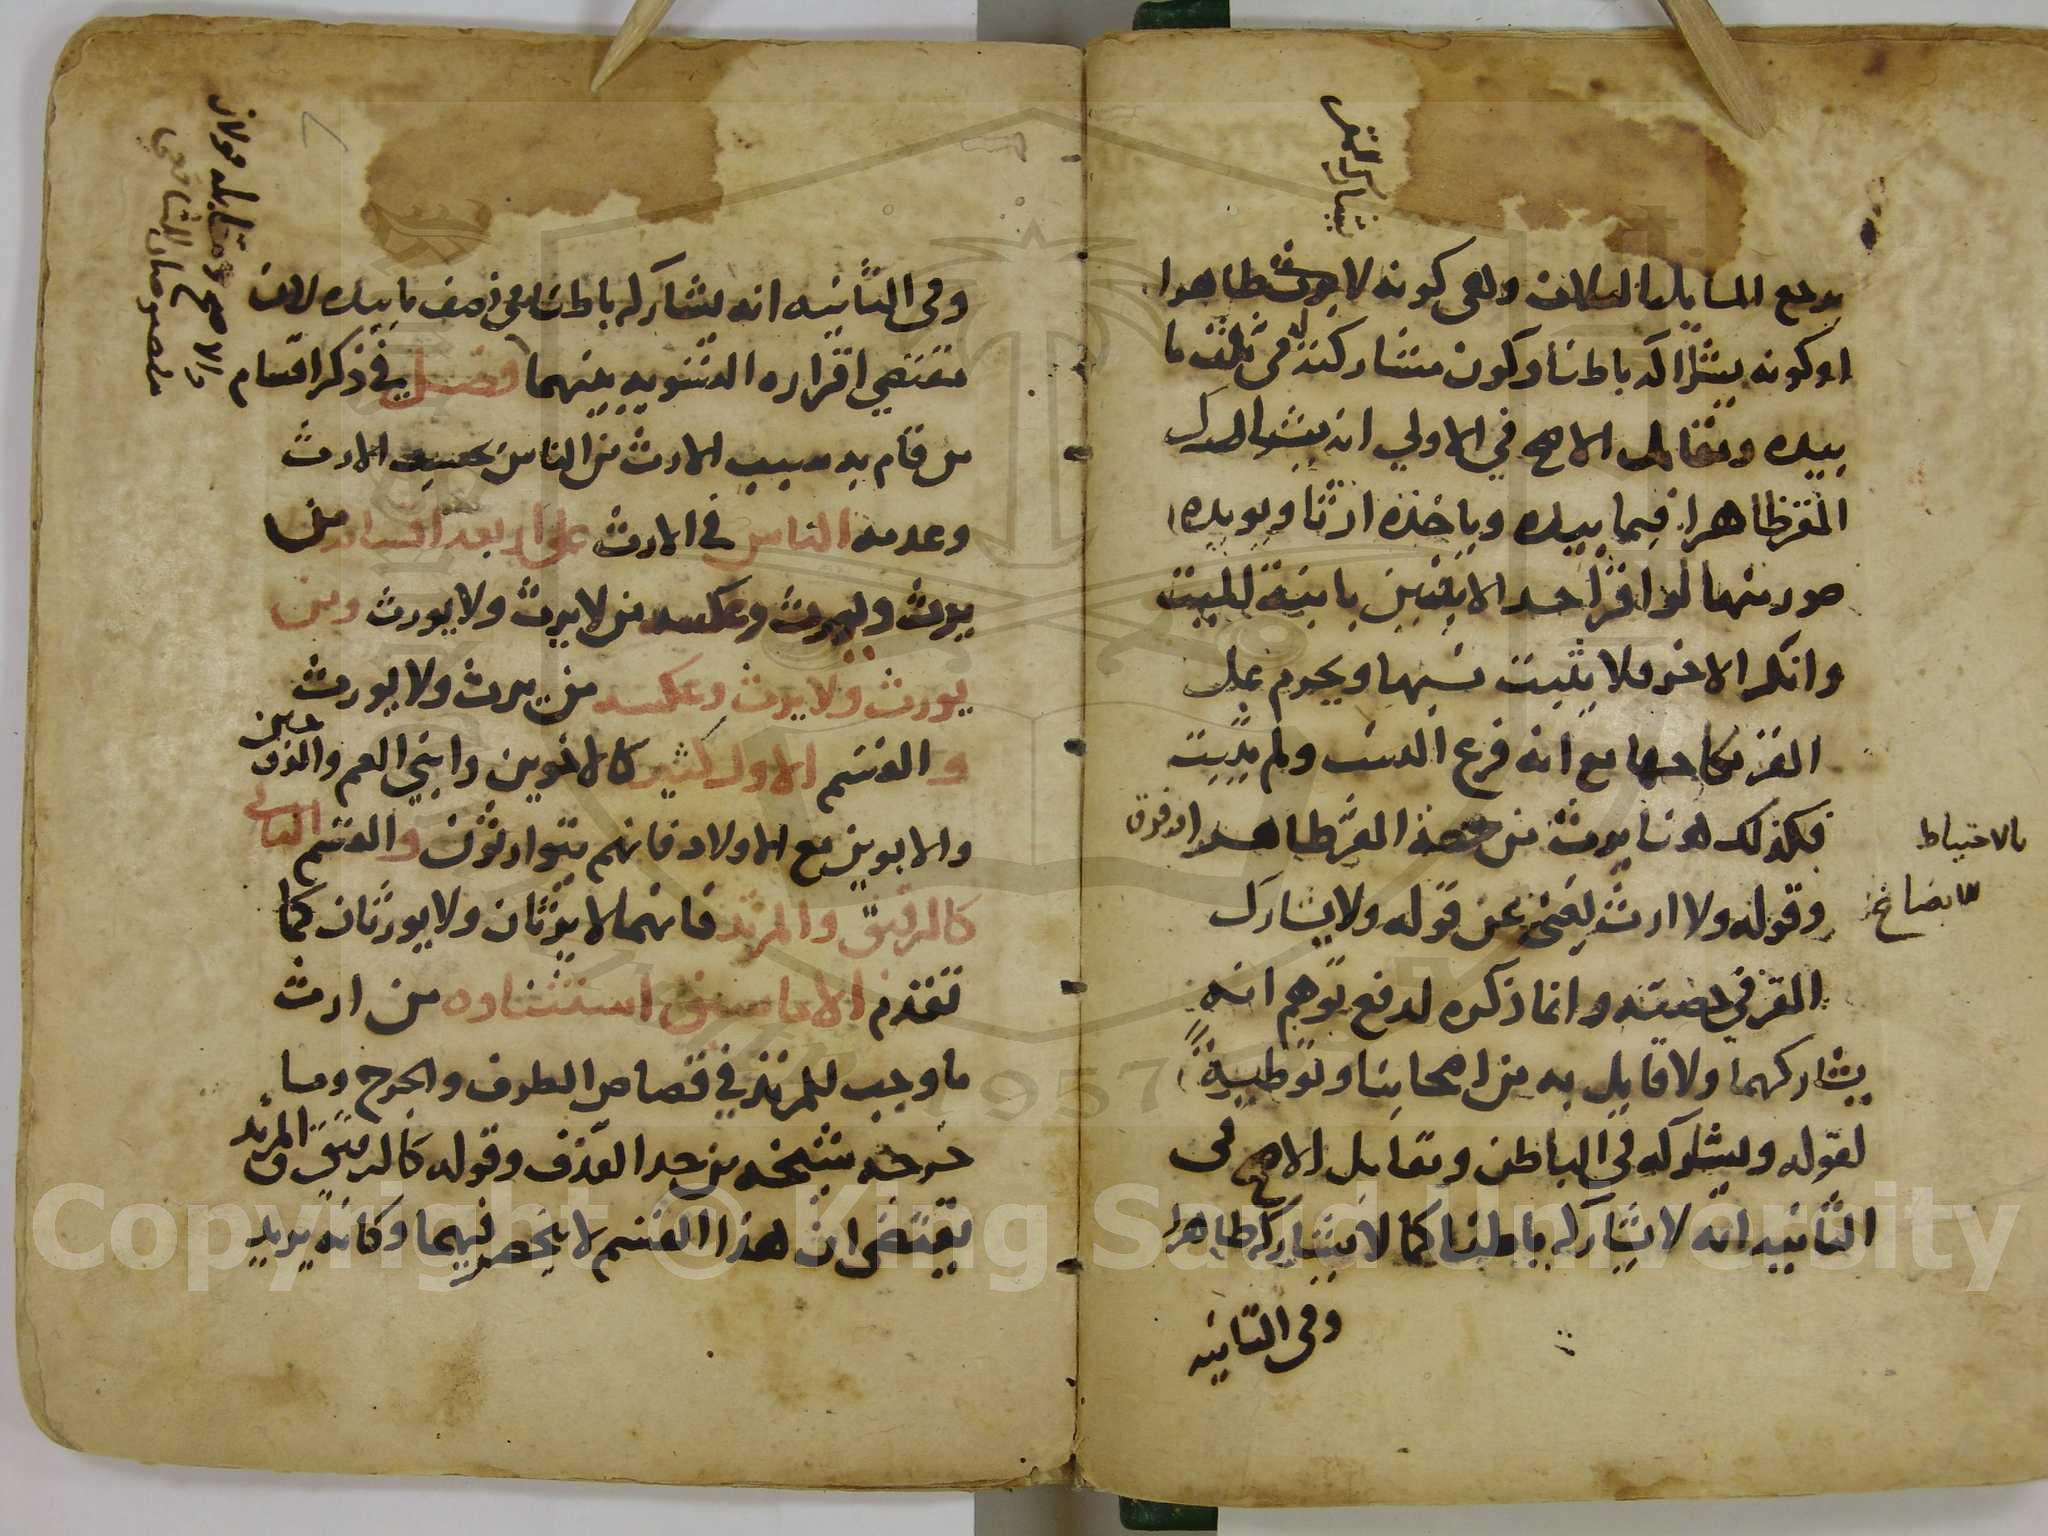 يرجع المسايل الثلاث وهي كونه لا يرث ظاهرا
او كونه يشاركه باطنا وكون مشاركته له في ثلث ما
بيده ومقابل الاصح في الاولى انه يشارك
المقر ظاهرا فيما بيده وياخذه ارثا ويويده
صورتهما لو اقر احد الابنين بابنة للميت
وانكر الاخر فلا يثبت نسبها ويحرم على
المقر نكاحها مع انه فرع النسب ولم يثبت
فكذلك هنا يرث من حصة المقر ظاهرا
وقوله ولا ارث يغني عن قوله ولا يشارك
المقر في حصته وانما ذكره لدفع توهم انه
يشاركهما ولا قايل به من اصحابنا وتوطية
لقوله ويشاركه في الباطن ومقابل الاصح في
الثانيه انه لا يشاركه باطنا كما لا يشاركه ظاهرا
وفي الثانيه
بالاحتياط
وفي الثانيه انه يشاركه باطنا في نصف ما بيده لان
مقتضي اقراره التسويه بينهما فصل في ذكر اقسام
من قام به سبب الارث من الناس بحسب الارث
وعدمه الناس في الارث على اربعة اقسام من
يرث ويورث وعكسه من لا يرث ولا يورث ومن
يورث ولا يرث وعكسه من يرث ولا يورث
والقسم الاول كثير كالاخوين وابني العم والزوجين
والابوين مع الاولاد فانهم يتوارثون والقسم الثاني
كالرقيق والمرتد فانهما لا يرثان ولا يورثان كما
تقدم الا ما سبق استثناوه من ارث
ما وجب للمرتد في قصاص الطرف والجرح وما
خرجه شيخه من حد القذف وقوله كالرقيق والمرتد
يقتضي ان هذا القسم لا ينحصر فيهما وكانه يريد
Copyright © King Saud University
1957